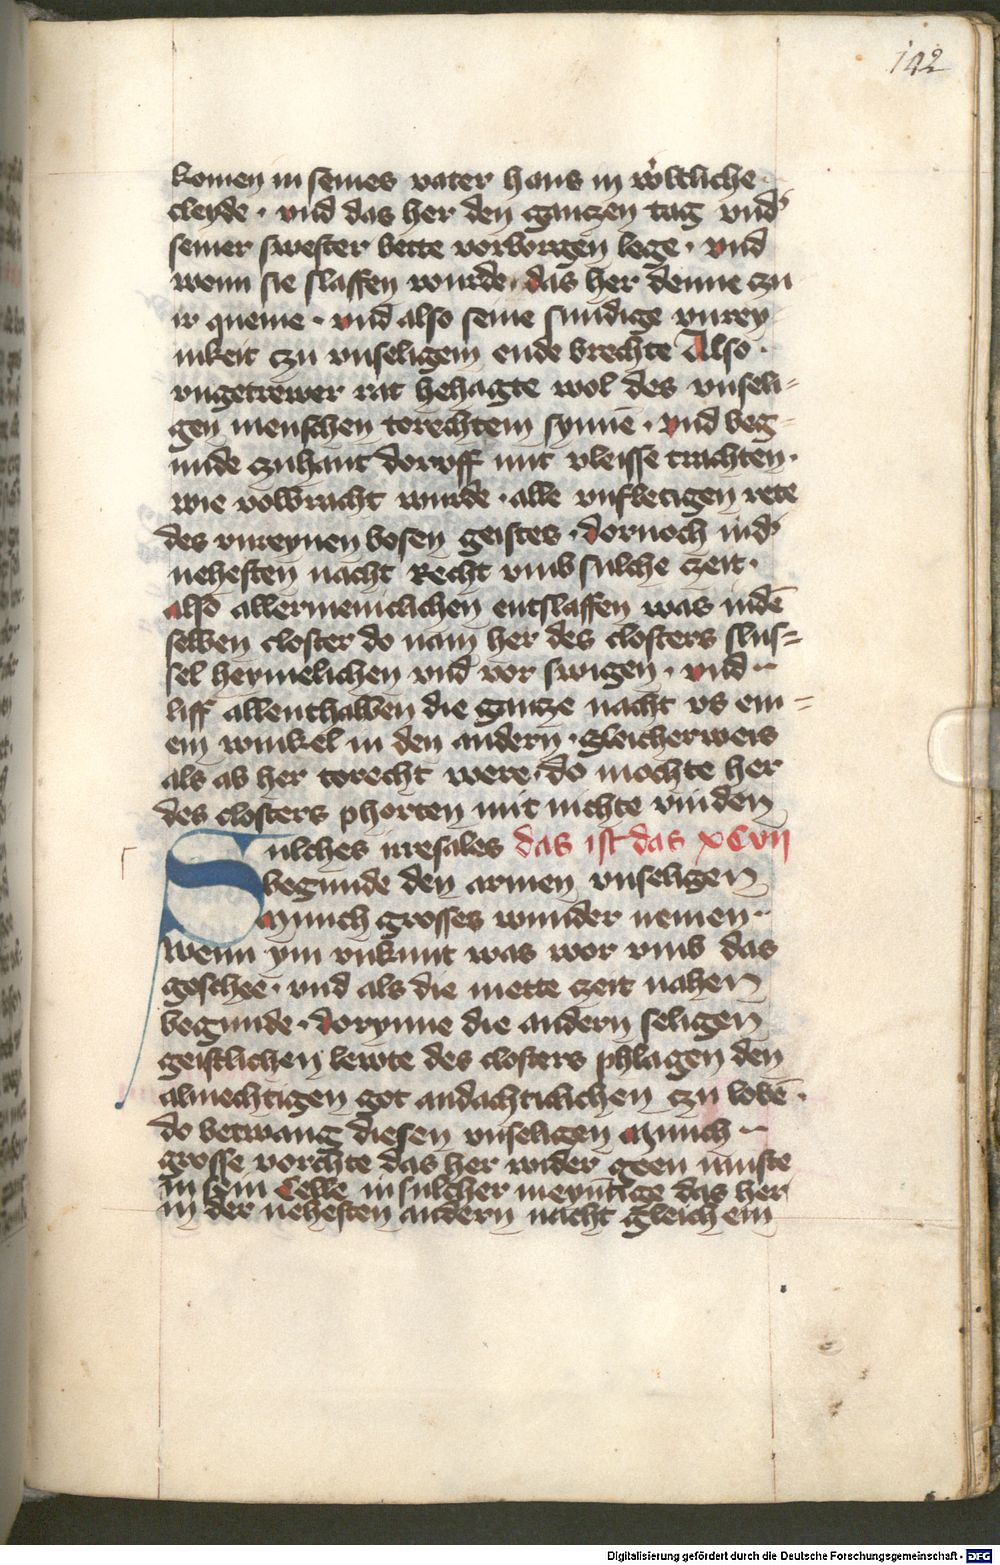 192
komen in seines vater haus in wertliche
cleyde · vnd das her den gantzen tag vnd'
seiner swester bette vorborgen lege · vnd
wenn sie slaffen wurde · das her denne czu
ir queme · vnd also seine sundige vnrey
nikeit czu vnseligem ende brechte Also ·
vngetrewer rat behagte wol des vnseli=
gen menschen torechtem synne · vnd beg=
unde czuhant doruff mit vleisse trachten ·
wie volbracht wurde · alle vnfletigen rete
des vnreynen bosen geistes · dornoch ind'
nehesten nacht Recht vmb sulche zeit ·
also allermeniclichen entslaffen was indē
selben closter do nam her des closters slus=
sel heymelichen vnd vor swigen · vnd
liff allenthalben die gantze nacht vs ein=
em winkel in den andern · gleicherweis
als ab her torecht were · do mochte her
des closters phorten mit nichte vinden
Sulches irresales das ist das xCvii
begunde den armen vnseligen
Munch grosses wunder nemen ·
wenn ym vnkunt was wor vmb das
geschee · vnd als die mette zeit nahen
begunde · dorynne die andern seligen
geistlichen lewte des closters phlagen den
almechtigen got andachticlichen czu lobē ·
do betwang diesen vnseligen Munch
grosse vorchte das her wider geen muste
in sein Celle in sulcher meynūge das her
in der nehesten andern nacht gleich ein
Digitalisierung gefördert durch die Deutsche Forschungsgemeinschaft - DFG